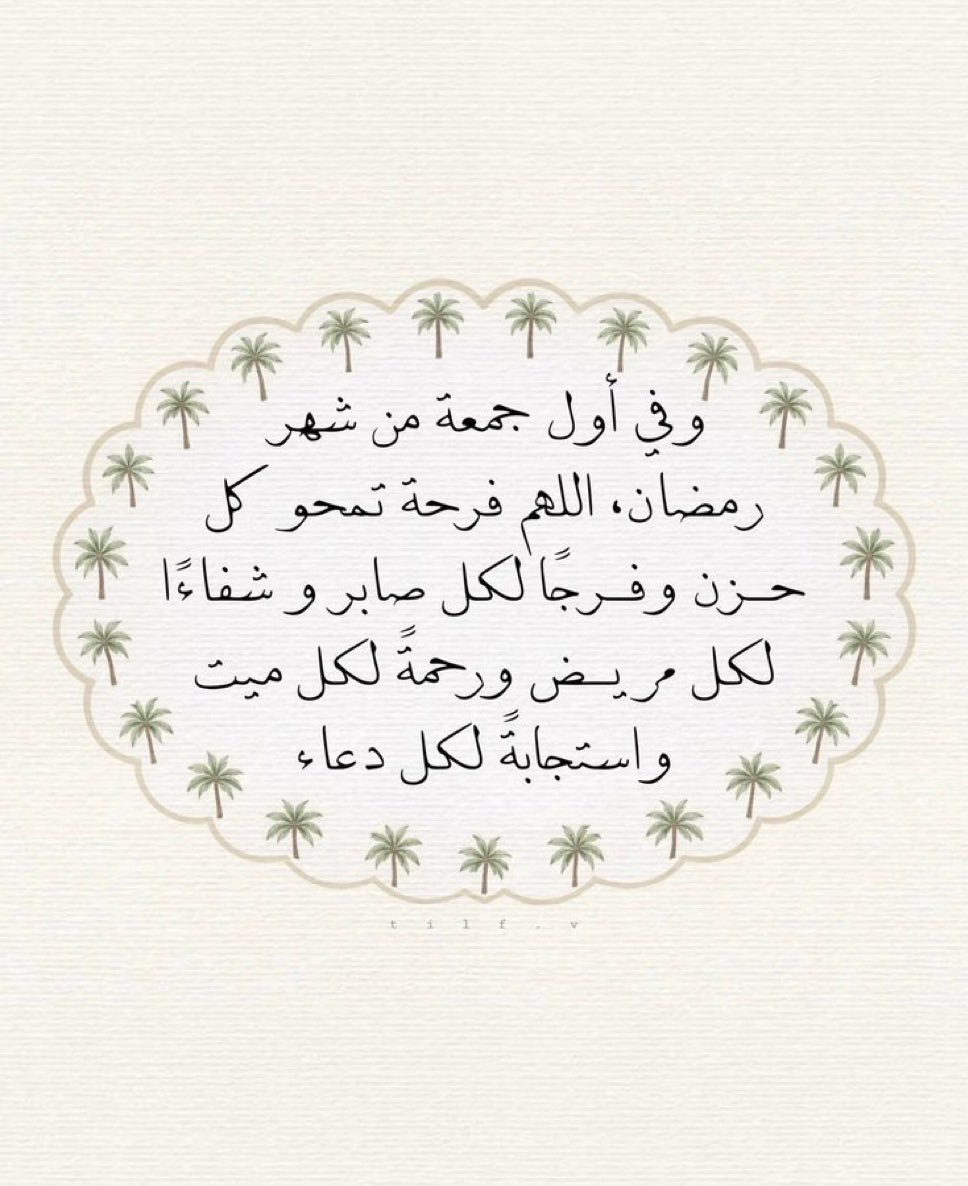 وفي أول جمعة من شهر
رمضان، اللهم فرحة تمحو كل
حــزن وفــرجًا لكل صابر و شفاءًا
لكل مريــض ورحمةً لكل ميت
واستجابةً لكل دعاء
t i l f . v